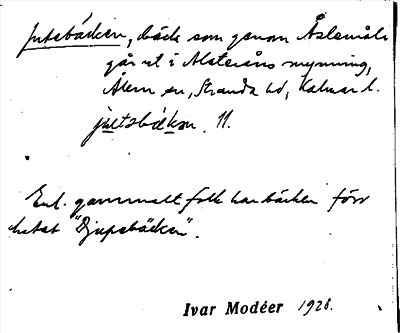 Jutsbäcken, bäck som genom Åslemåla
går ut i Alsteråns mynning,
Ålem sn, Stranda hd, Kalmar l.
jutsbäkən 11.
Enl. gammalt folk har bäcken förr
hetat "Djupsbäcken".
Ivar Modéer 1928.